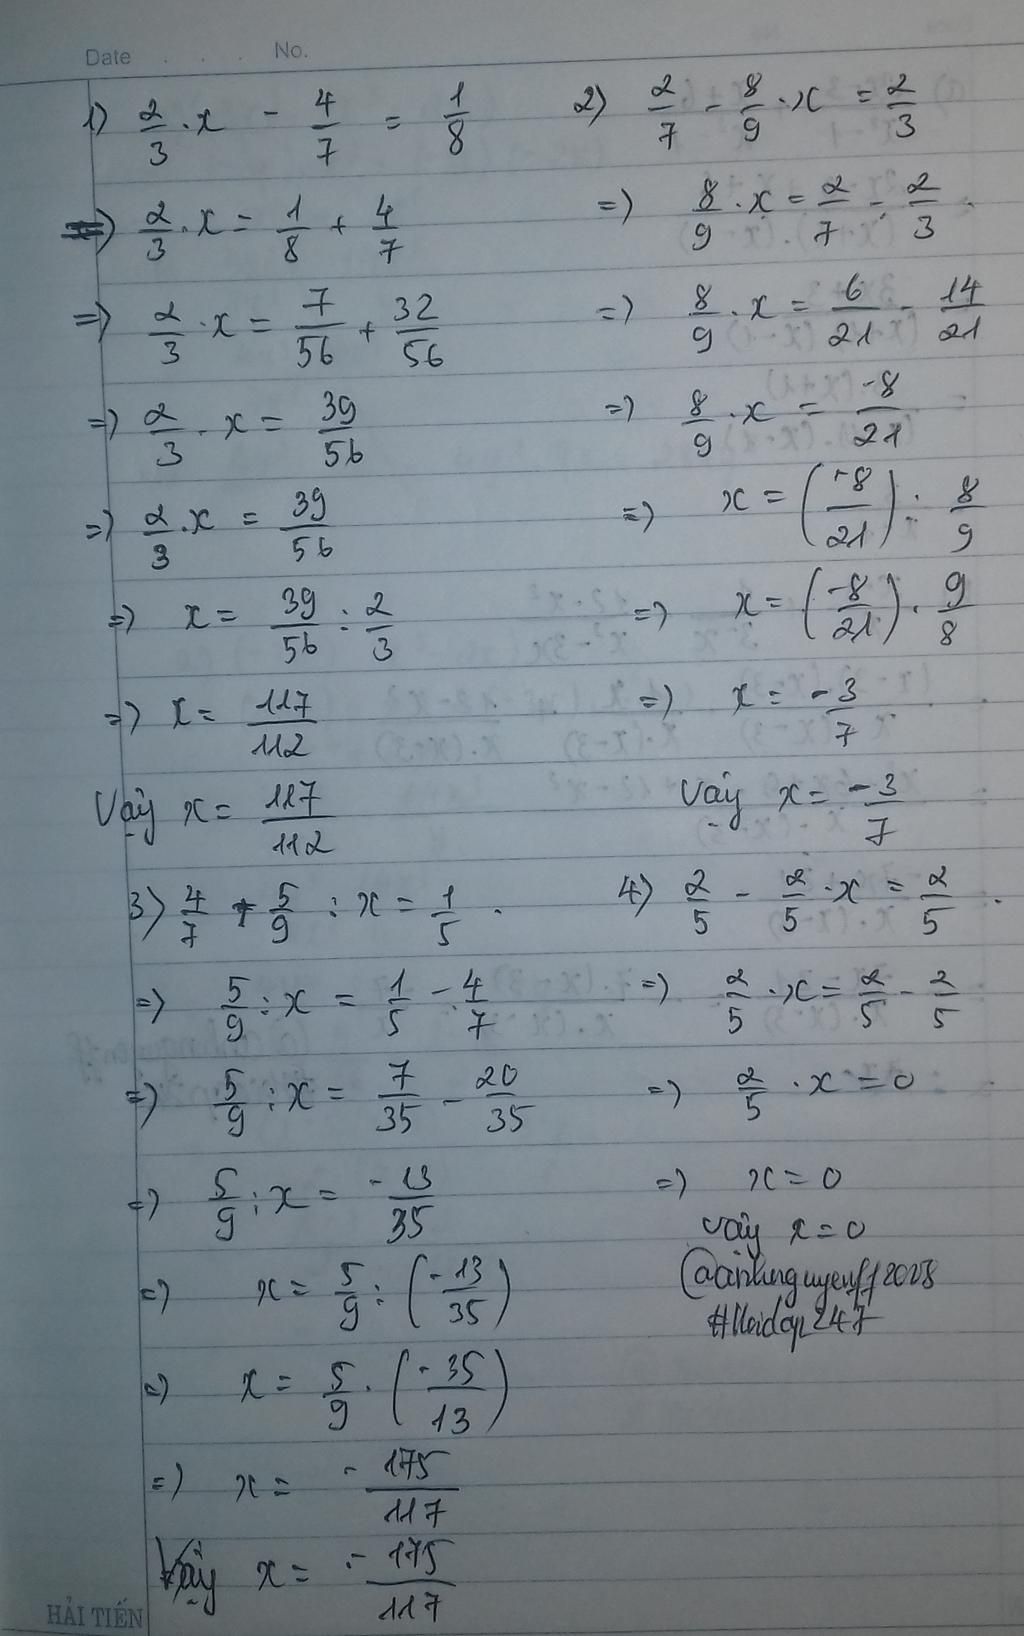 Date . . . No.
1) 2/3 . x - 4/7 = 1/8
=) 2/3 . x = 1/8 + 4/7
=) 2/3 . x = 7/56 + 32/56
=) 2/3 . x = 39/56
=) 2/3 . x = 39/56
=) x = 39/56 : 2/3
=) x = 117/112
Vậy x = 117/112
2) 2/7 - 8/9 . x = 2/3
=) 8/9 . x = 2/7 - 2/3
=) 8/9 . x = 6/21 - 14/21
=) 8/9 . x = -8/21
=) x = (-8/21) : 8/9
=) x = (-8/21) . 9/8
=) x = -3/7
Vậy x = -3/7
3) 4/7 + 5/9 : x = 1/5
=) 5/9 : x = 1/5 - 4/7
=) 5/9 : x = 7/35 - 20/35
=) 5/9 : x = -13/35
=) x = 5/9 : (-13/35)
=) x = 5/9 . (-35/13)
=) x = -175/117
Vậy x = -175/117
4) 2/5 - 2/5 . x = 2/5
=) 2/5 . x = 2/5 - 2/5
=) 2/5 . x = 0
=) x = 0
Vậy x = 0
HẢI TIẾN